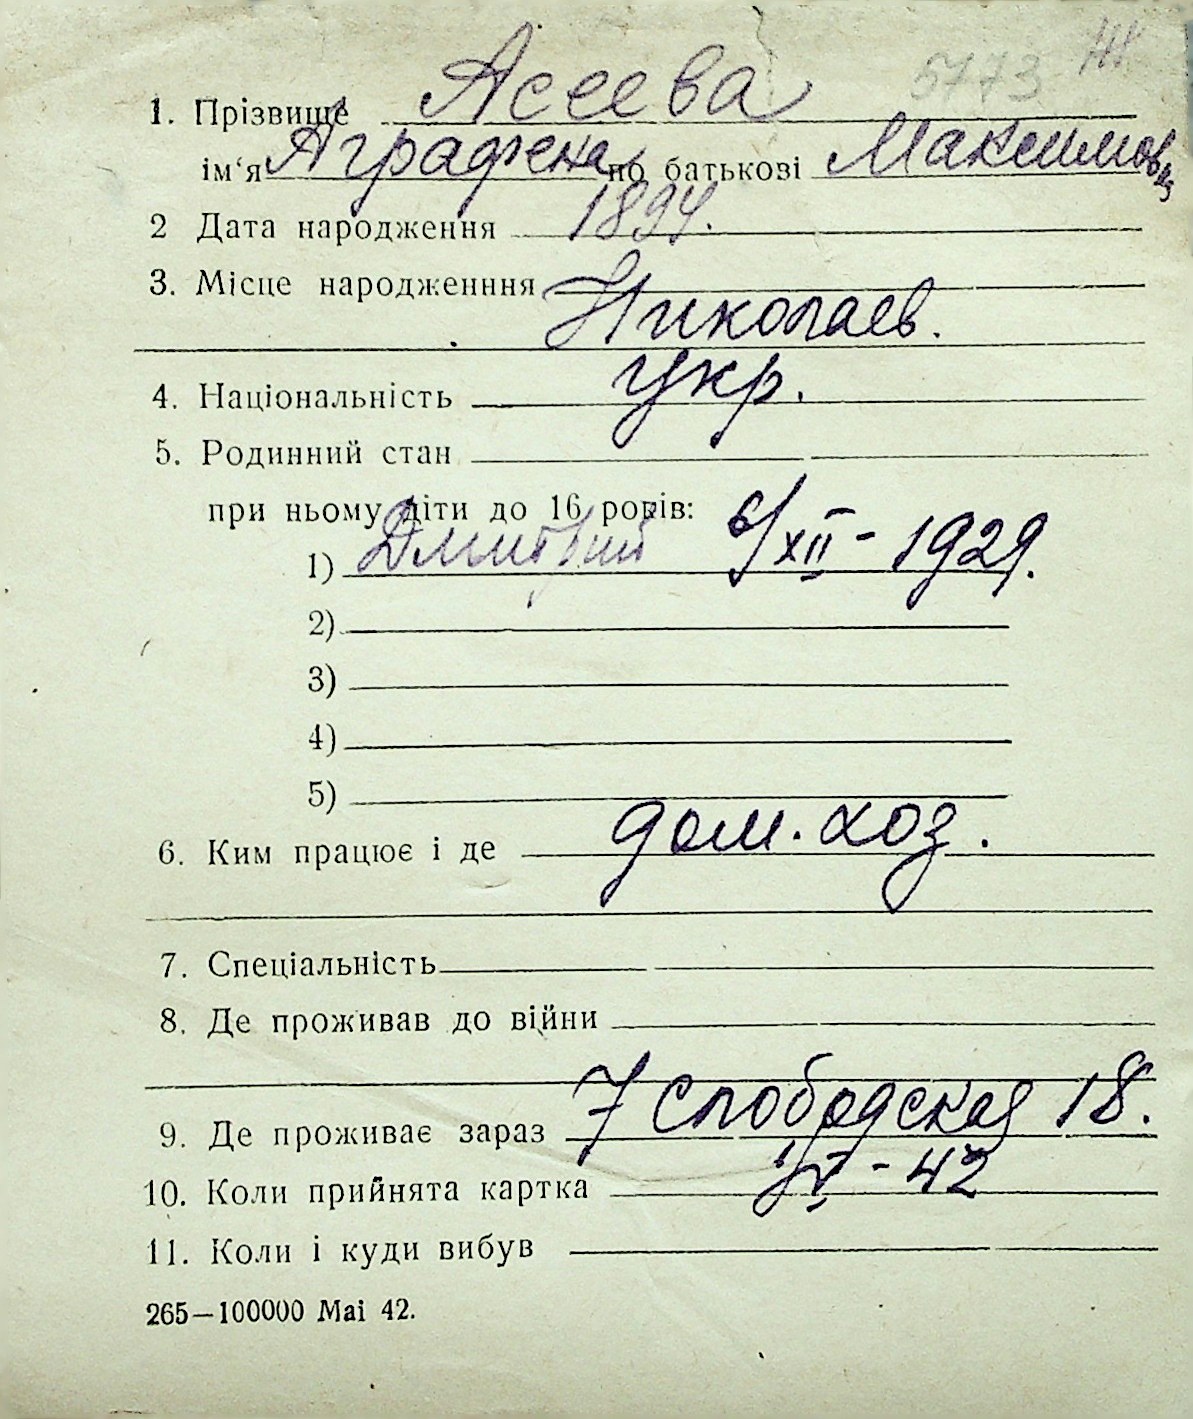 5773 Ж
1. Прізвище Асеева
ім'я Аграфена по батькові Максимовна
2 Дата народження 1894.
3. Місце народженння
Николаев.
4. Національність укр.
5. Родинний стан
при ньому діти до 16 років:
1) Дмитрий 6/XII - 1929.
2)
3)
4)
5)
6. Ким працює і де дом. хоз.
7. Спеціальність
8. Де проживав до війни
9. Де проживає зараз 7 Слободская 18.
10. Коли прийнята картка - 42
11. Коли і куди вибув
265—100000 Mai 42.